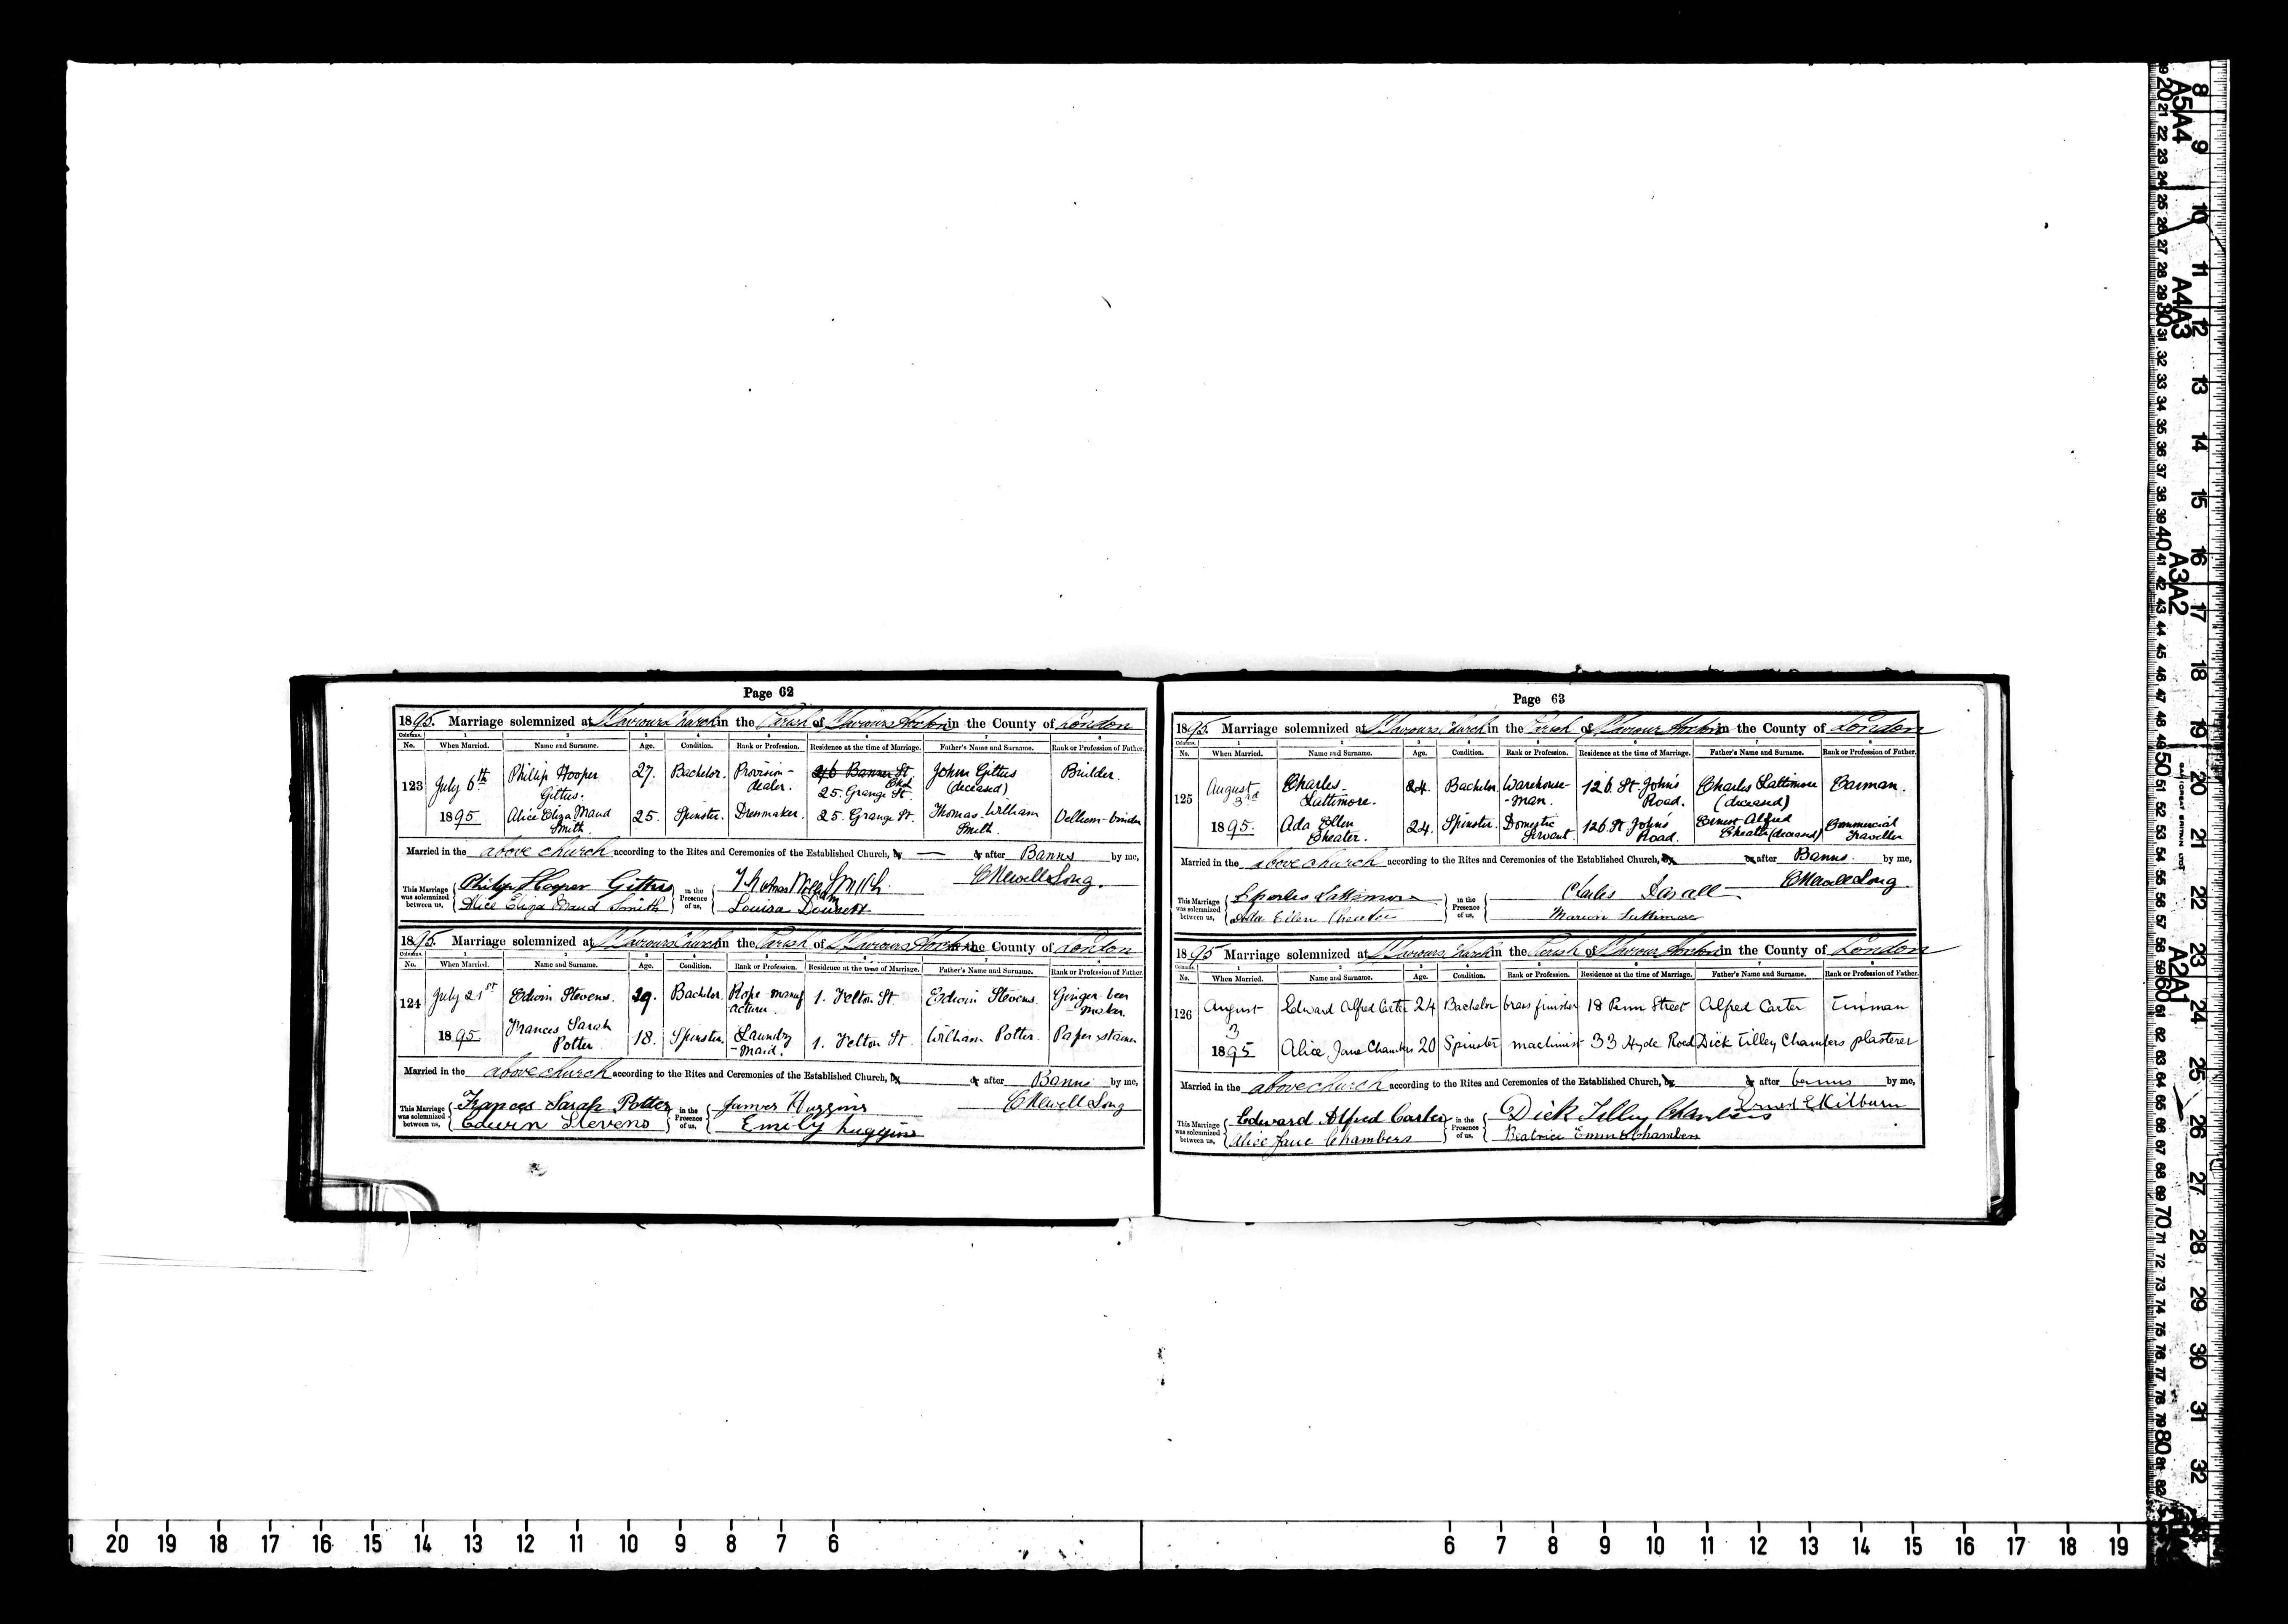 Page 62
1895. Marriage solemnized at St Saviours Church in the Parish of St Saviours Hoxton in the County of London
Columns. 1 2 3 4 5 6 7 8
No. When Married. Name and Surname. Age. Condition. Rank or Profession. Residence at the time of Marriage. Father's Name and Surname. Rank or Profession of Father.
123 July 6th Philip Hooper Gittus. 27. Bachelor. Provision-dealer. 25. Grange St. John Gittus (deceased) Builder.
1895 Alice Eliza Maud Smith. 25. Spinster. Dressmaker. 25. Grange St. Thomas William Smith. Vellum-binder
Married in the above church according to the Rites and Ceremonies of the Established Church, by — or after Banns by me,
This Marriage was solemnized between us, Philip Hooper Gittus in the Presence of us, Thomas William Smith. C Newell Long.
Alice Eliza Maud Smith Louisa Dowsett
1895. Marriage solemnized at St Saviours Church in the Parish of St Saviours Hoxton in the County of London
Columns. 1 2 3 4 5 6 7 8
No. When Married. Name and Surname. Age. Condition. Rank or Profession. Residence at the time of Marriage. Father's Name and Surname. Rank or Profession of Father.
124 July 21st Edwin Stevens. 29. Bachelor. Rope manufacturer. 1. Felton St Edwin Stevens. Ginger beer maker.
1895 Frances Sarah Potter 18. Spinster. Laundry-maid. 1. Felton St. William Potter. Paper stainer
Married in the above church according to the Rites and Ceremonies of the Established Church, by or after Banns by me,
This Marriage was solemnized between us, Frances Sarah Potter in the Presence of us, James Huggins C Newell Long
Edwin Stevens Emily huggins
Page 63
1895. Marriage solemnized at St Saviours Church in the Parish of St Saviours Hoxton in the County of London
Columns. 1 2 3 4 5 6 7 8
No. When Married. Name and Surname. Age. Condition. Rank or Profession. Residence at the time of Marriage. Father's Name and Surname. Rank or Profession of Father.
125 August 3rd Charles Lattimore. 24. Bachelor. Warehouse-man. 126. St. John's Road. Charles Lattimore (deceased) Carman.
1895. Ada Ellen Cheater. 24. Spinster. Domestic Servant. 126. St John's Road. Ernest Alfred Cheater (deceased) Commercial Traveller
Married in the above church according to the Rites and Ceremonies of the Established Church, by or after Banns. by me,
This Marriage was solemnized between us, Charles Lattimore in the Presence of us, Charles C Newell Long.
Ada Ellen Cheater Marion Lattimore
1895 Marriage solemnized at St Saviours Church in the Parish of St Saviours Hoxton in the County of London
Columns. 1 2 3 4 5 6 7 8
No. When Married. Name and Surname. Age. Condition. Rank or Profession. Residence at the time of Marriage. Father's Name and Surname. Rank or Profession of Father.
126 August 3 Edward Alfred Carter 24 Bachelor brass finisher 18 Penn Street Alfred Carter Tinman
1895 Alice Jane Chambers 20 Spinster machinist 33 Hyde Road Dick Tilley Chambers plasterer
Married in the above church according to the Rites and Ceremonies of the Established Church, by or after banns by me,
This Marriage was solemnized between us, Edward Alfred Carter in the Presence of us, Dick Tilley Chambers Ernest E Kilburn
Alice Jane Chambers Beatrice Emma Chambers
20 19 18 17 16 15 14 13 12 11 10 9 8 7 6 6 7 8 9 10 11 12 13 14 15 16 17 18 19